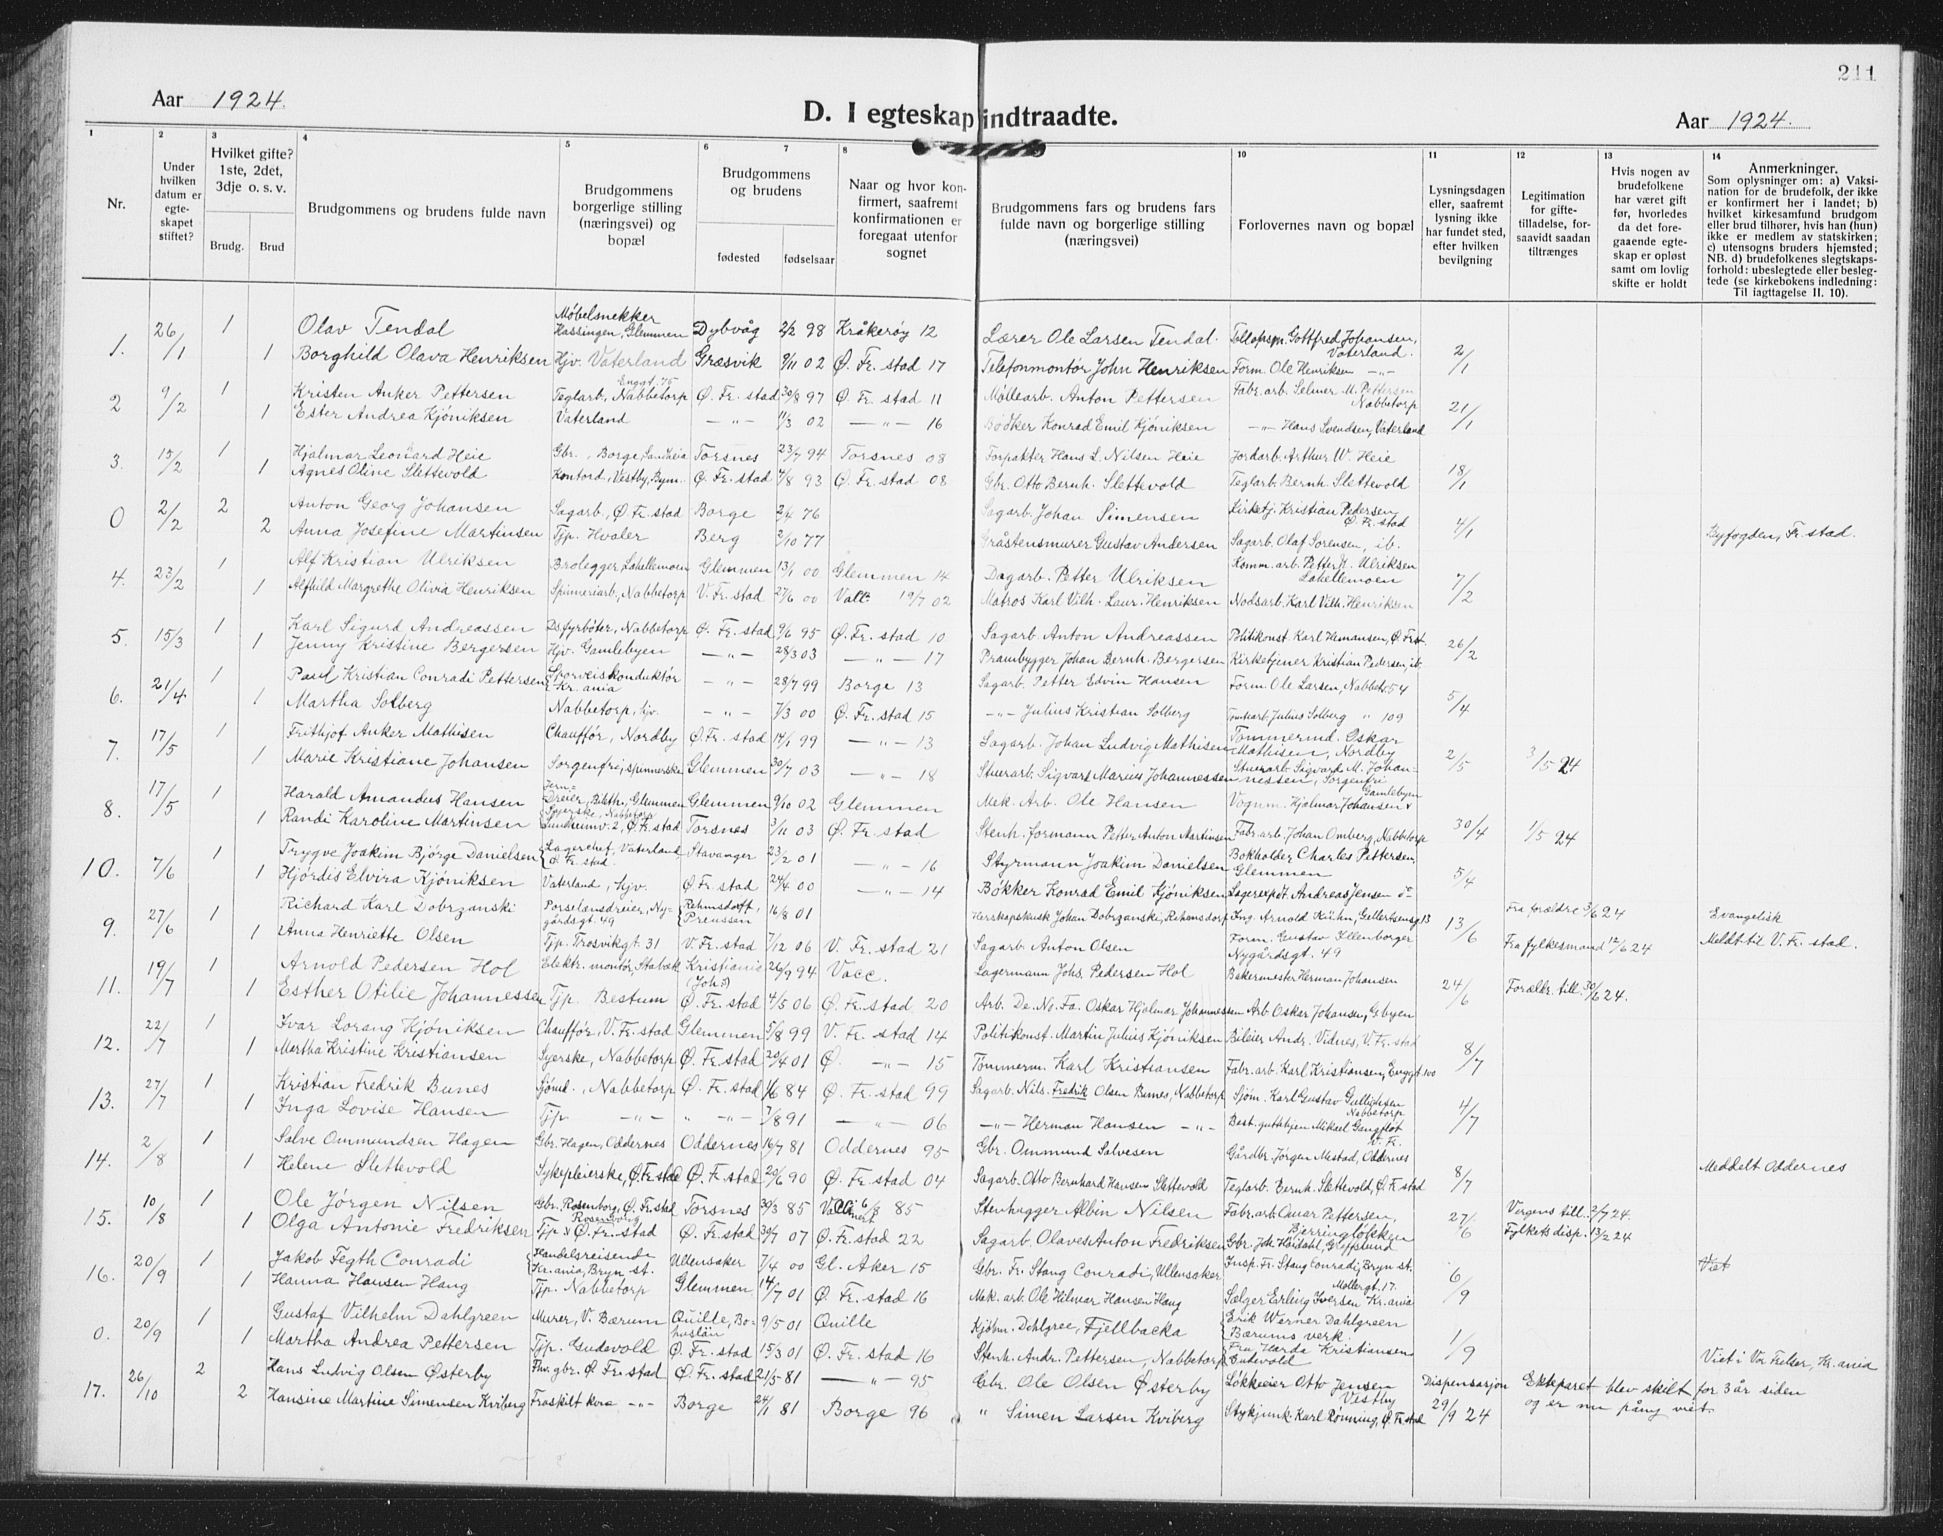 211
Aar 1924.
D. I egteskap indtraadte.
Aar 1924.
1 2 3 4 5 6 7 8 10 11 12 13 14
Nr.
Under hvilken datum er egte-skapet stiftet?
Hvilket gifte? 1ste, 2det, 3dje o. s. v.
Brudg. Brud
Brudgommens og brudens fulde navn
Brudgommens borgerlige stilling (næringsvei) og bopæl
Brudgommens og brudens
fødested fødselsaar
Naar og hvor kon-firmert, saafremt konfirmationen er foregaat utenfor sognet
Brudgommens fars og brudens fars fulde navn og borgerlige stilling (næringsvei)
Forlovernes navn og bopæl
Lysningsdagen eller, saafremt lysning ikke har fundet sted, efter hvilken bevilgning
Legitimation for gifte-tilladelse, for-saavidt saadan tiltrænges
Hvis nogen av brudefolkene har været gift før, hvorledes da det fore-gaaende egte-skap er opløst samt om lovlig skifte er holdt
Anmerkninger.
Som oplysninger om: a) Vaksi-nation for de brudefolk, der ikke er konfirmert her i landet; b) hvilket kirkesamfund brudgom eller brud tilhører, hvis han (hun) ikke er medlem av statskirken; c) utensogns bruders hjemsted; NB. d) brudefolkenes slegtskaps-forhold: ubeslegtede eller besleg-tede (se kirkebokens indledning: Til iagttagelse II. 10).
1. 26/1 1 Olav Tendal Møbelsnekker Hassingen, Glemmen Dybvåg 2/2 98 Kråkerøy 12 Lærer Ole Larsen Tendal. Gottfred Johansen, Vaterland. 2/1
1 Borghild Olava Henriksen Hjv. Vaterland Græsvik 9/11 02 Ø. Fr. stad 17 Telefonmontør John Henriksen Form. Ole Henriksen —"—
2 9/2 1 Kristen Anker Pettersen Teglarb., Nabbetorp Ø. Fr. stad 30/8 97 Ø. Fr. stad 11 Møllearb. Anton Pettersen Fabr. arb. Selmer M. Pettersen Nabbetorp 21/1
1 Ester Andrea Kjöniksen Vaterland —"— 11/3 02 —"— 16 Bødker Konrad Emil Kjöniksen —"— Hans Svendsen, Vaterland
3. 15/2 1 Hjalmar Leonard Heie Gbr., Borge, Torsnes 23/7 94 Torsnes 08 Forpakter Hans L. Nilsen Heie Jordarb. Arthur W. Heie 18/1
1 Agnes Oline Slettevold Kontord., Vestby, Bym. Ø. Fr. stad 4/8 93 Ø. Fr. stad 08 Gbr. Otto Bernh. Slettevold Teglarb. Bernh. Slettevold
0 2/2 2 Anton Georg Johansen Sagarb., Ø. Fr. stad Borge 2/4 76 Sagarb. Johan Simensen Kirketj. Kristian Pedersen Ø. Fr. stad 4/1
2 Anna Josefine Martinsen Tjp. Hvaler Berg 2/10 77 Gråstensmurer Gustav Andersen Sagarb. Olaf Sørensen, ib. Byfogden, Fr. stad.
4. 23/2 1 Alf Kristian Ulriksen Brolegger, Lahellemoen Glemmen 13/1 00 Glemmen 14 Dagarb. Petter Ulriksen Komm. arb. Petter J. Ulriksen Lahellemoen 7/2
1 Alfhild Margrethe Olivia Henriksen Spinneriarb., Nabbetorp V. Fr. stad 27/6 00 19/7 02 Matros Karl Vilh. Laur. Henriksen Nodsarb. Karl Vilh. Henriksen
5. 15/3 1 Karl Sigurd Andreassen Nabbetorp Ø. Fr. stad 9/6 95 Ø. Fr. stad 10 Sagarb. Anton Andreassen Politikonst. Karl Hemansen, Ø. Frst. 26/2
1 Jenny Kristine Bergersen Hjv. Gamlebyen —"— 28/3 03 —"— 17 Prambygger Johan Bernh. Bergersen Kirketjener Kristian Pedersen, ib.
6. 21/4 1 Paul Kristian Conradi Pettersen Sporveiskonduktør Kr. ania —"— 28/7 99 Borge 13 Sagarb. Petter Edvin Hansen Form. Ole Larsen, Nabbet. 54 5/4
1 Martha Solberg Nabbetorp, hjv. —"— 7/3 00 Ø. Fr. stad 15 —"— Julius Kristian Solberg Julius Solberg " 109
7. 17/5 1 Frithjof Anker Mathisen Chauffør, Nordby Ø. Fr. stad 14/1 99 —"— 13 Sagarb. Johan Ludvig Mathisen Tømmerm. Oskar Mathisen, Nordby 2/5 3/5 24
1 Marie Kristiane Johansen Sorgenfri, spinnerske Glemmen 30/7 03 —"— 18 Stuerarb. Sigvard Marius Johannessen Stuerarb. Sigvard M. Johannessen, Sorgenfri
8. 17/5 1 Harald Amandus Hansen Jern-Dreier, Glemmen Glemmen 9/10 02 Glemmen Mek. Arb. Ole Hansen Vognm. Hjalmar Johansen Gamlebyen 30/4 1/5 24
1 Randi Karoline Martinsen Syerske, Nabbetorp Ø. Fr. stad Torsnes 3/11 03 Ø. Fr. stad Stenh. formann Petter Anton Martinsen Fabr. arb. Johan Omberg, Nabbetorp
10. 7/6 1 Trygve Joakim Bjørge Danielsen Lagerchef, Vaterland, Ø. Fr. stad Stavanger 23/2 01 —"— 16 Styrmann Joakim Danielsen Bokholder Charles Pettersen, Glemmen 5/4
1 Hjördis Elvira Kjöniksen Vaterland, hjv. Ø. Fr. stad 24/4 00 —"— 14 Bøkker Konrad Emil Kjöniksen Lagerexpd. Andreas Jensen
9. 27/6 1 Richard Karl Dobrzanski Porselænsdreier, Nygårdsgt. 49 Rehmsdorff, Preussen 16/8 01 Herskapskusk Johan Dobrzanski, Rehmsdorf Ing. Arnold Kühn, Gellertseng 13 13/6 Fra forældre 3/6 24 Evangelisk
1 Anna Henriette Olsen Tjp. Trosvikgt. 31 V. Fr. stad 7/12 06 V. Fr. stad 21 Sagarb. Anton Olsen Form. Gustav Ellenborger Nygårdsgt. 49 Fra fylkesmand 12/6 24 Meldt til V. Fr. stad.
11. 19/7 1 Arnold Pedersen Hol Elektr. montør, Stabæk Kristiania (Joh.) 26/9 94 Vacc. Lagermann Johs. Pedersen Hol Bakermester Herman Johansen 24/6
1 Esther Otilie Johannessen Tjp. Bestum Ø. Fr. stad 4/5 06 Ø. Fr. stad 20 Arb. De. No. Fa. Oskar Hjalmar Johannessen Arb. Oskar Johansen, Gbyen Forælkr. till. 30/6 24.
12. 22/7 1 Ivar Lorang Kjöniksen Chauffør, V. Fr. stad Glemmen 5/8 99 V. Fr. stad 14 Politikonst. Martin Julius Kjöniksen Bileier Andr. Vidnes, V. Fr. stad 8/7
1 Martha Kristine Kristiansen Syerske, Nabbetorp Ø. Fr. stad 20/4 01 Ø. —"— 15 Tømmerm. Karl Kristiansen Fabr. arb. Karl Kristiansen, Enggt. 100
13. 27/7 1 Kristian Fredrik Bunes Sjömd., Nabbetorp Ø. Fr. stad 1/6 84 Ø. Fr. stad 99 Sagarb. Nils Fredrik Olsen Bunes, Nabbetorp Sjöm. Karl Gustav Gulliksen Nabbetorp 4/7
1 Inga Lovise Hansen Tjp. —"— " —"— 7/8 91 —"— 06 —"— Herman Hansen —"— Mikael Gangfløt V. Fr.
14. 2/8 1 Salve Ommundsen Hagen Gbr. Hagen, Oddernes Oddernes 16/7 81 Oddernes 95 Gbr. Ommund Salvesen Gårdbr. Jörgen Mestad, Oddernes 8/7
1 Helene Slettevold Sykepleierske, Ø. Fr. stad Ø. F. stad 20/6 90 Ø. Fr. stad 04 Sagarb. Otto Bernhard Hansen Slettevold Teglarb. Bernh. Slettevold, Ø. F. stad Meddelt Oddernes
15. 10/8 1 Ole Jörgen Nilsen Gbr. Rosenborg, Ø. Fr. stad Torsnes 30/3 85 6/8 85 Stenhugger Albin Nilsen Fabr. arb. Omar Pettersen, Bjerringløkken 27/6 Vergens till. 2/7 24.
1 Olga Antonie Fredriksen Rosenborg Tjp. Ø. Fr. stad Ø. Fr. stad 30/7 07 Ø. Fr. stad 22 Sagarb. Olaves Anton Fredriksen Gbr. Joh. Høidahl, Fylkets disp. 13/2 24
16. 20/9 1 Jakob Fegth Conradi Handelsreisende Kr.ania, Bryn st. Ullensaker 7/4 00 Gl. Aker 15 Gbr. Fr. Stang Conradi, Ullensaker Insp. Fr. Stang Conradi, Bryn st. 6/9 Viet
1 Hanna Hansen Haug Tjp. Nabbetorp Glemmen 14/7 01 Ø. Fr. stad 16 Mek. arb. Ole Hilmar Hansen Haug Sælger Erling Iversen Møllergt. 17. Kr. ania
0. 20/9 1 Gustaf Vilhelm Dahlgreen Murer, V. Bærum Quille, Bohuslän 9/5 01 Quille Kjøbm. Dahlgree, Fjellbacka Erik Werner Dahlgreen Bærums verk. 1/9
1 Martha Andrea Pettersen Tjp. Gudevold Ø. Fr. stad 15/3 01 Ø. Fr. stad 16 Stenh. Andr. Pettersen, Nabbetorp Fru Harda Kristiansen Gudevold Viet i Vor Frelser, Kr. ania
17. 26/10 2 Hans Ludvig Olsen Østerby Fhv. gbr. Ø. Fr. stad Ø. Fr. stad 21/5 81 —"— 95 Gbr. Ole Olsen Østerby Løkkeier Otto Jensen Vestby Dispensasjon 29/9 24 Ekteparet blev skilt for 3 år siden
2 Hansine Martine Simensen Kviberg Fraskilt kona —"— Borge 24/1 81 Borge 96 " Simen Larsen Kviberg Stykjunk. Karl Rønning, Ø. Fr. stad og er nu påny viet.